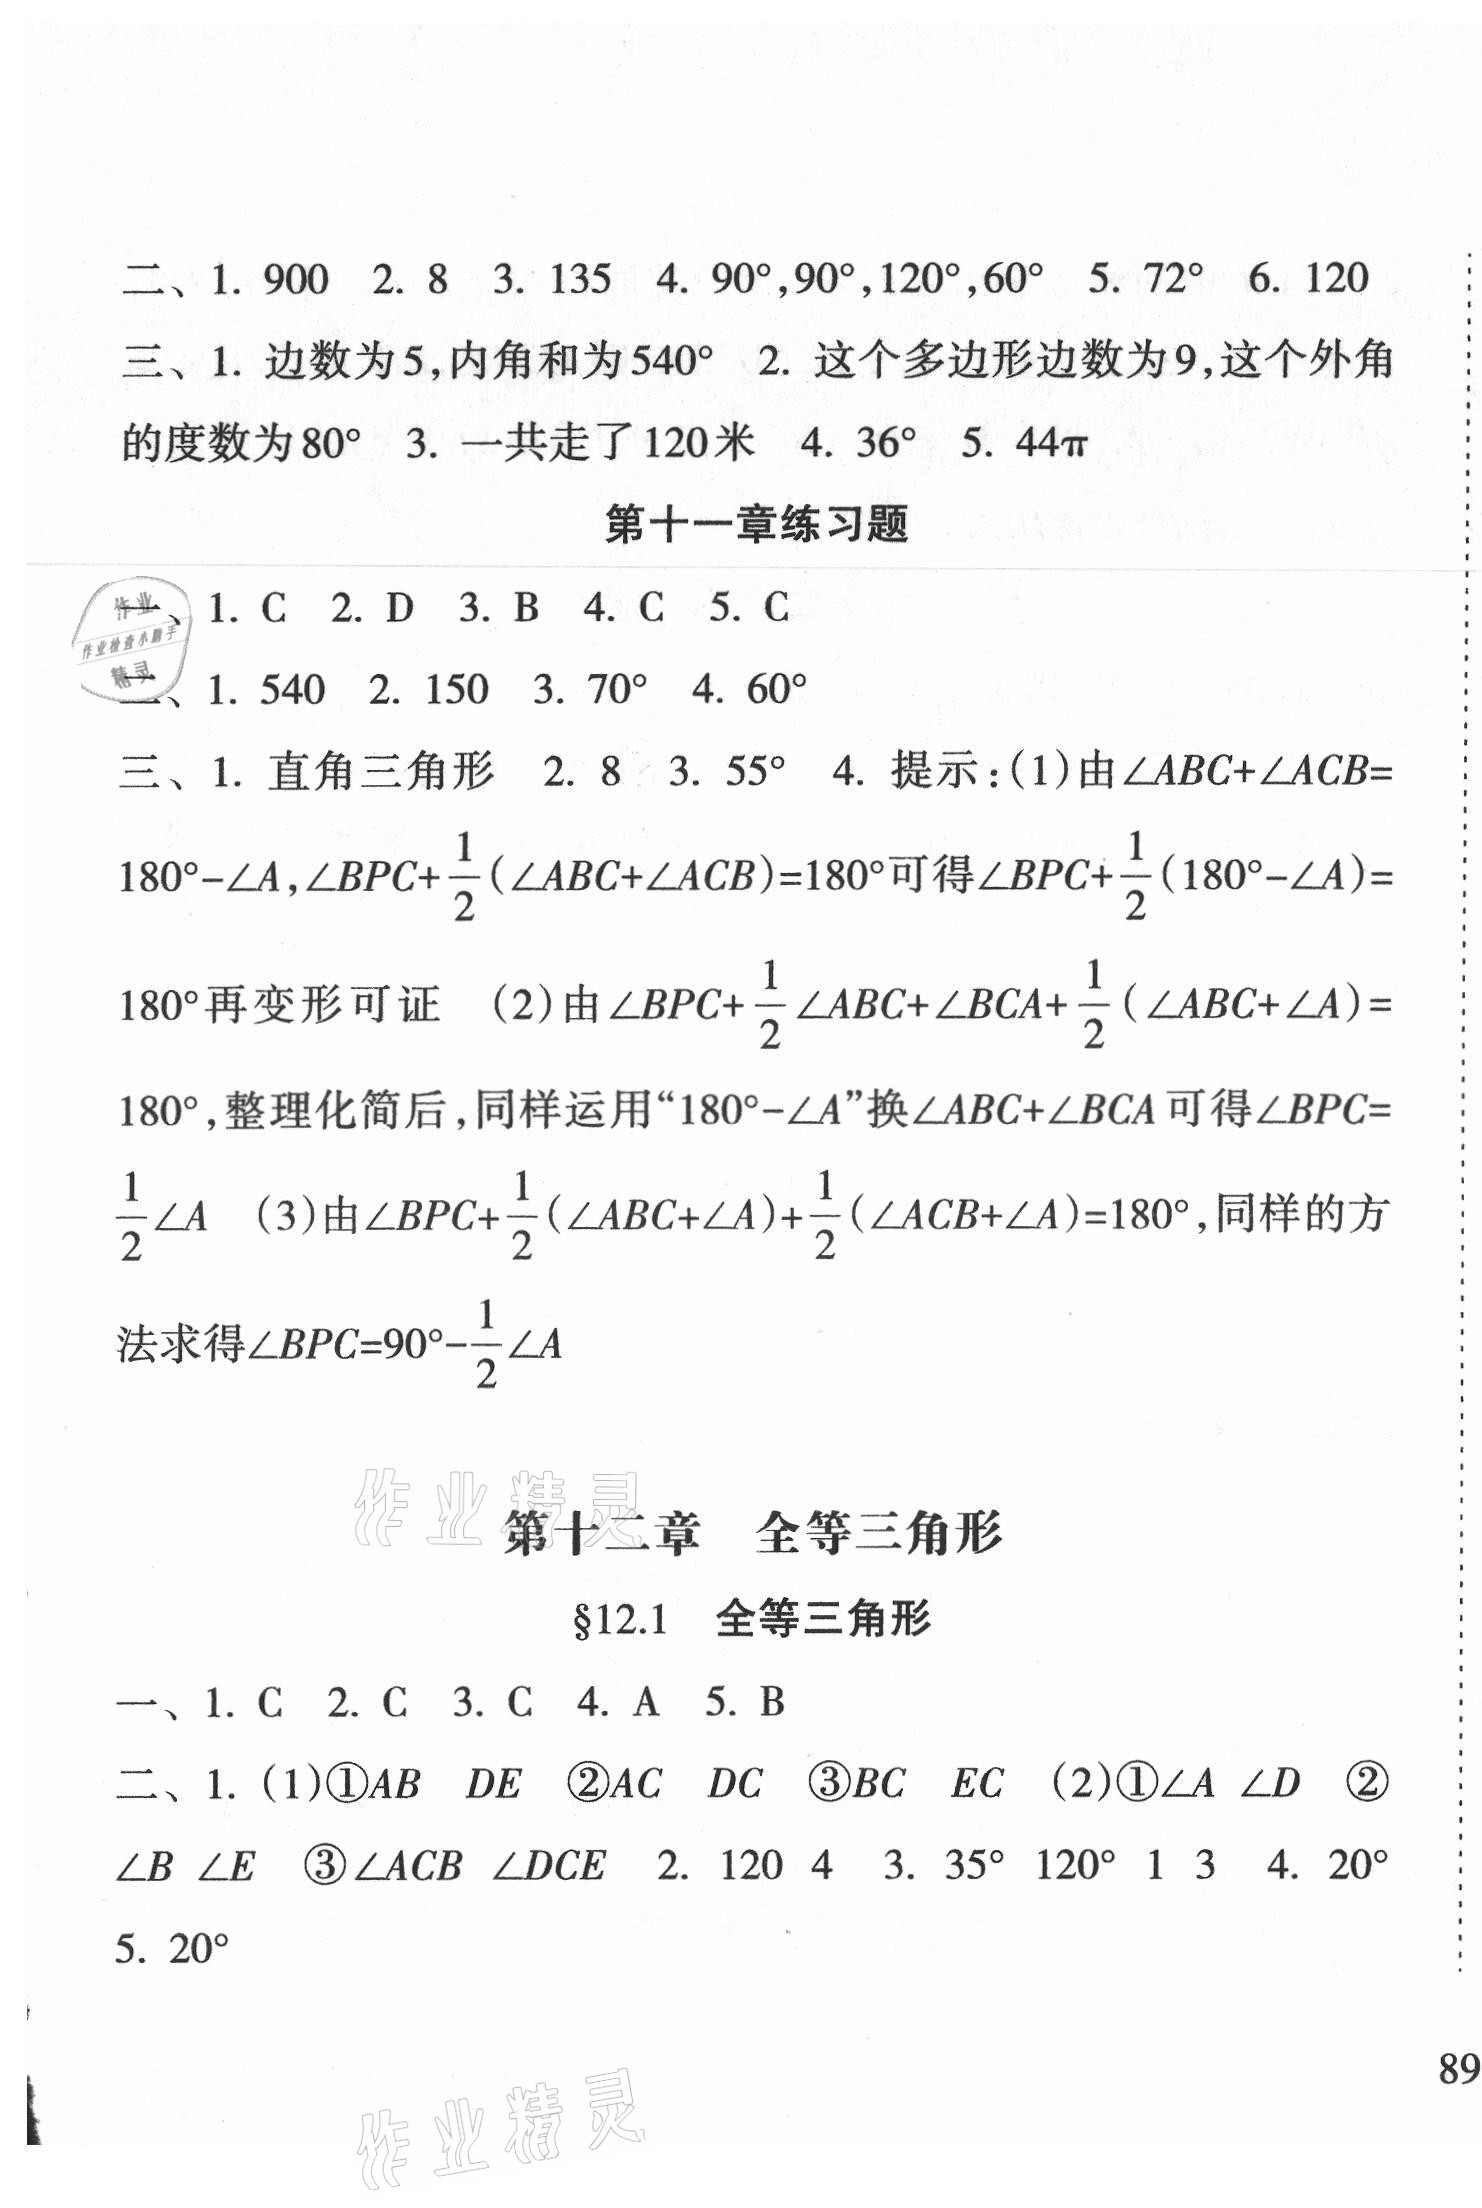 二、1. 900 2. 8 3. 135 4. 90°,90°,120°,60° 5. 72° 6. 120
三、1. 边数为5,内角和为540° 2. 这个多边形边数为9,这个外角
的度数为80° 3. 一共走了120米 4. 36° 5. 44π
第十一章练习题
一、1. C 2. D 3. B 4. C 5. C
作业
作业检查小助手
精灵
二、1. 540 2. 150 3. 70° 4. 60°
三、1. 直角三角形 2. 8 3. 55° 4. 提示:(1)由∠ABC+∠ACB=
180°-∠A,∠BPC+1/2(∠ABC+∠ACB)=180°可得∠BPC+1/2(180°-∠A)=
180°再变形可证 (2)由∠BPC+1/2∠ABC+∠BCA+1/2(∠ABC+∠A)=
180°,整理化简后,同样运用“180°-∠A”换∠ABC+∠BCA可得∠BPC=
1/2∠A (3)由∠BPC+1/2(∠ABC+∠A)+1/2(∠ACB+∠A)=180°,同样的方
法求得∠BPC=90°-1/2∠A
作业精灵
第十二章 全等三角形
§12.1 全等三角形
一、1. C 2. C 3. C 4. A 5. B
二、1. (1)①AB DE ②AC DC ③BC EC (2)①∠A ∠D ②
∠B ∠E ③∠ACB ∠DCE 2. 120 4 3. 35° 120° 1 3 4. 20°
5. 20°
89
作业精灵